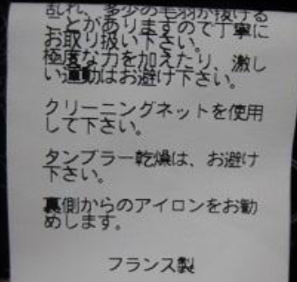 乱れ、多少の毛羽が抜ける
ことがありますので丁寧に
お取り扱い下さい。
極度な力を加えたり、激し
い運動はお避け下さい。
クリーニングネットを使用
して下さい。
タンブラー乾燥は、お避け
下さい。
裏側からのアイロンをお勧
めします。
フランス製